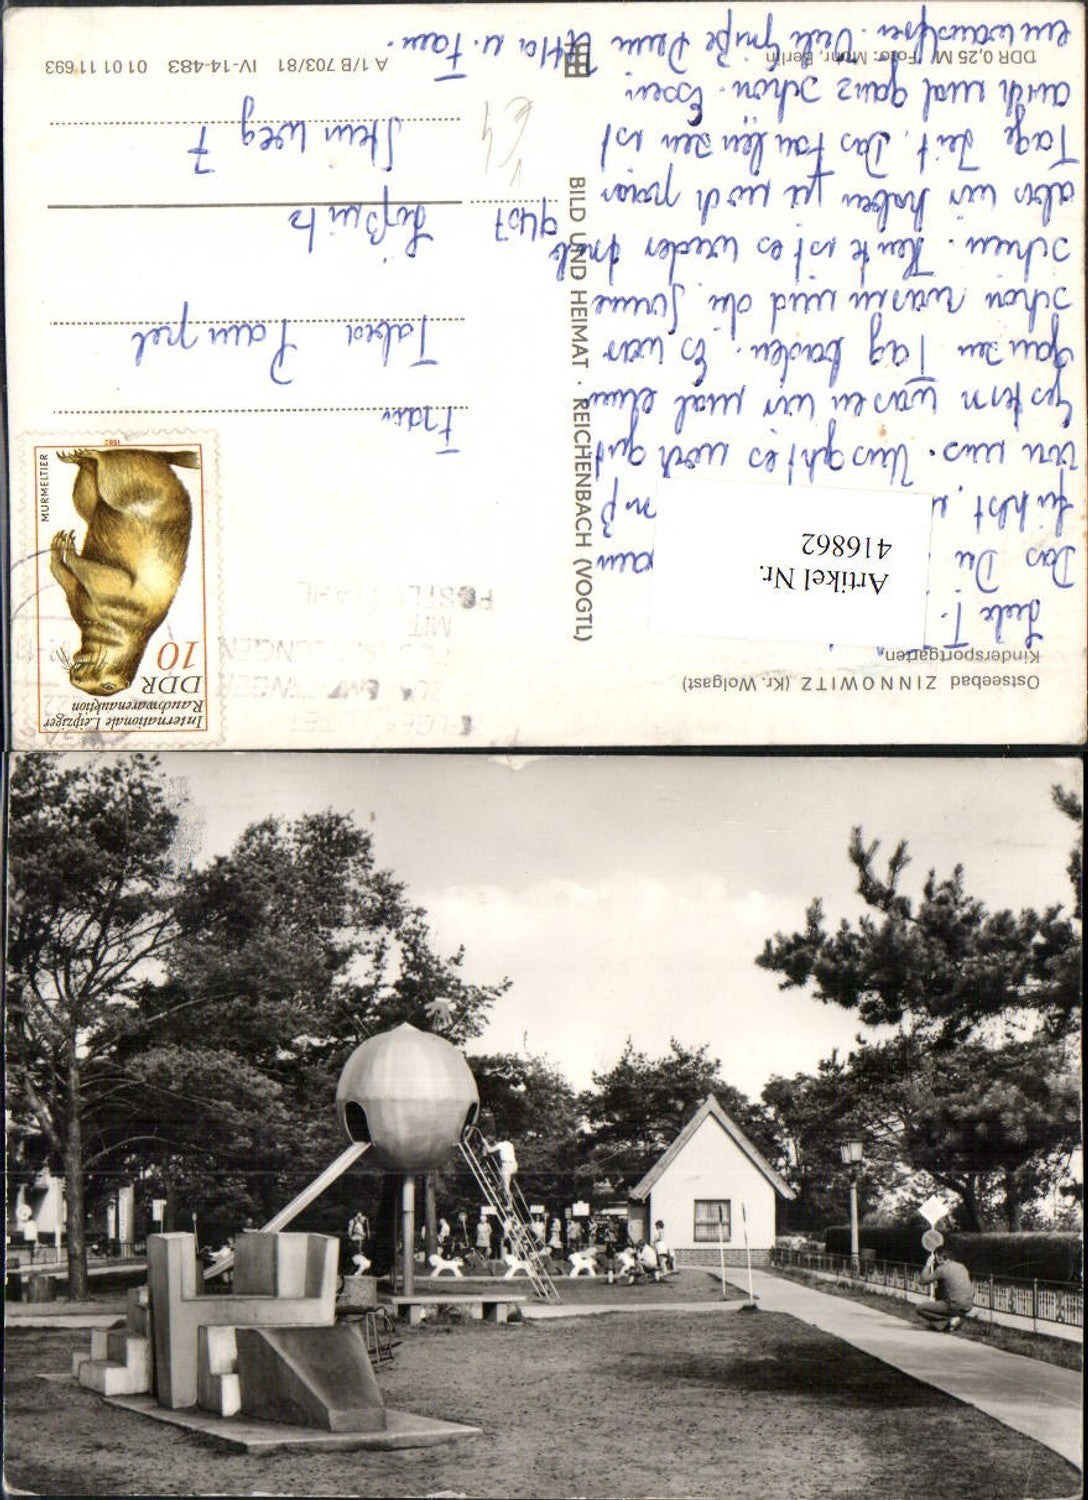 Ostseebad ZINNOWITZ (Kr. Wolgast)
Kindersportgarten
Artikel Nr.
416862
Liebe T.
Das Du
fühlst,
von uns. Uns geht es noch gut
Gestern waren wir mal einen
ganzen Tag baden. Es war
schön warm und die Sonne
schien. Heute ist es wieder
aber wir haben ja noch paar
Tage Zeit. Das Faulenzen ist
auch mal ganz schön. Essen
einwandfrei. Viele Grüße Deine Utta u. Fam.
DDR 0,25 M Foto: Mohr, Berlin
BILD UND HEIMAT · REICHENBACH (VOGTL)
Internationale Leipziger
Rauchwarenauktion
DDR
10
MURMELTIER
1982
MIT
POSTLEITZAHL
Frau
Pampel
9407
Lößnitz
Steinweg 7
€4
A 1/B 703/81 IV-14-483 01 01 11 693